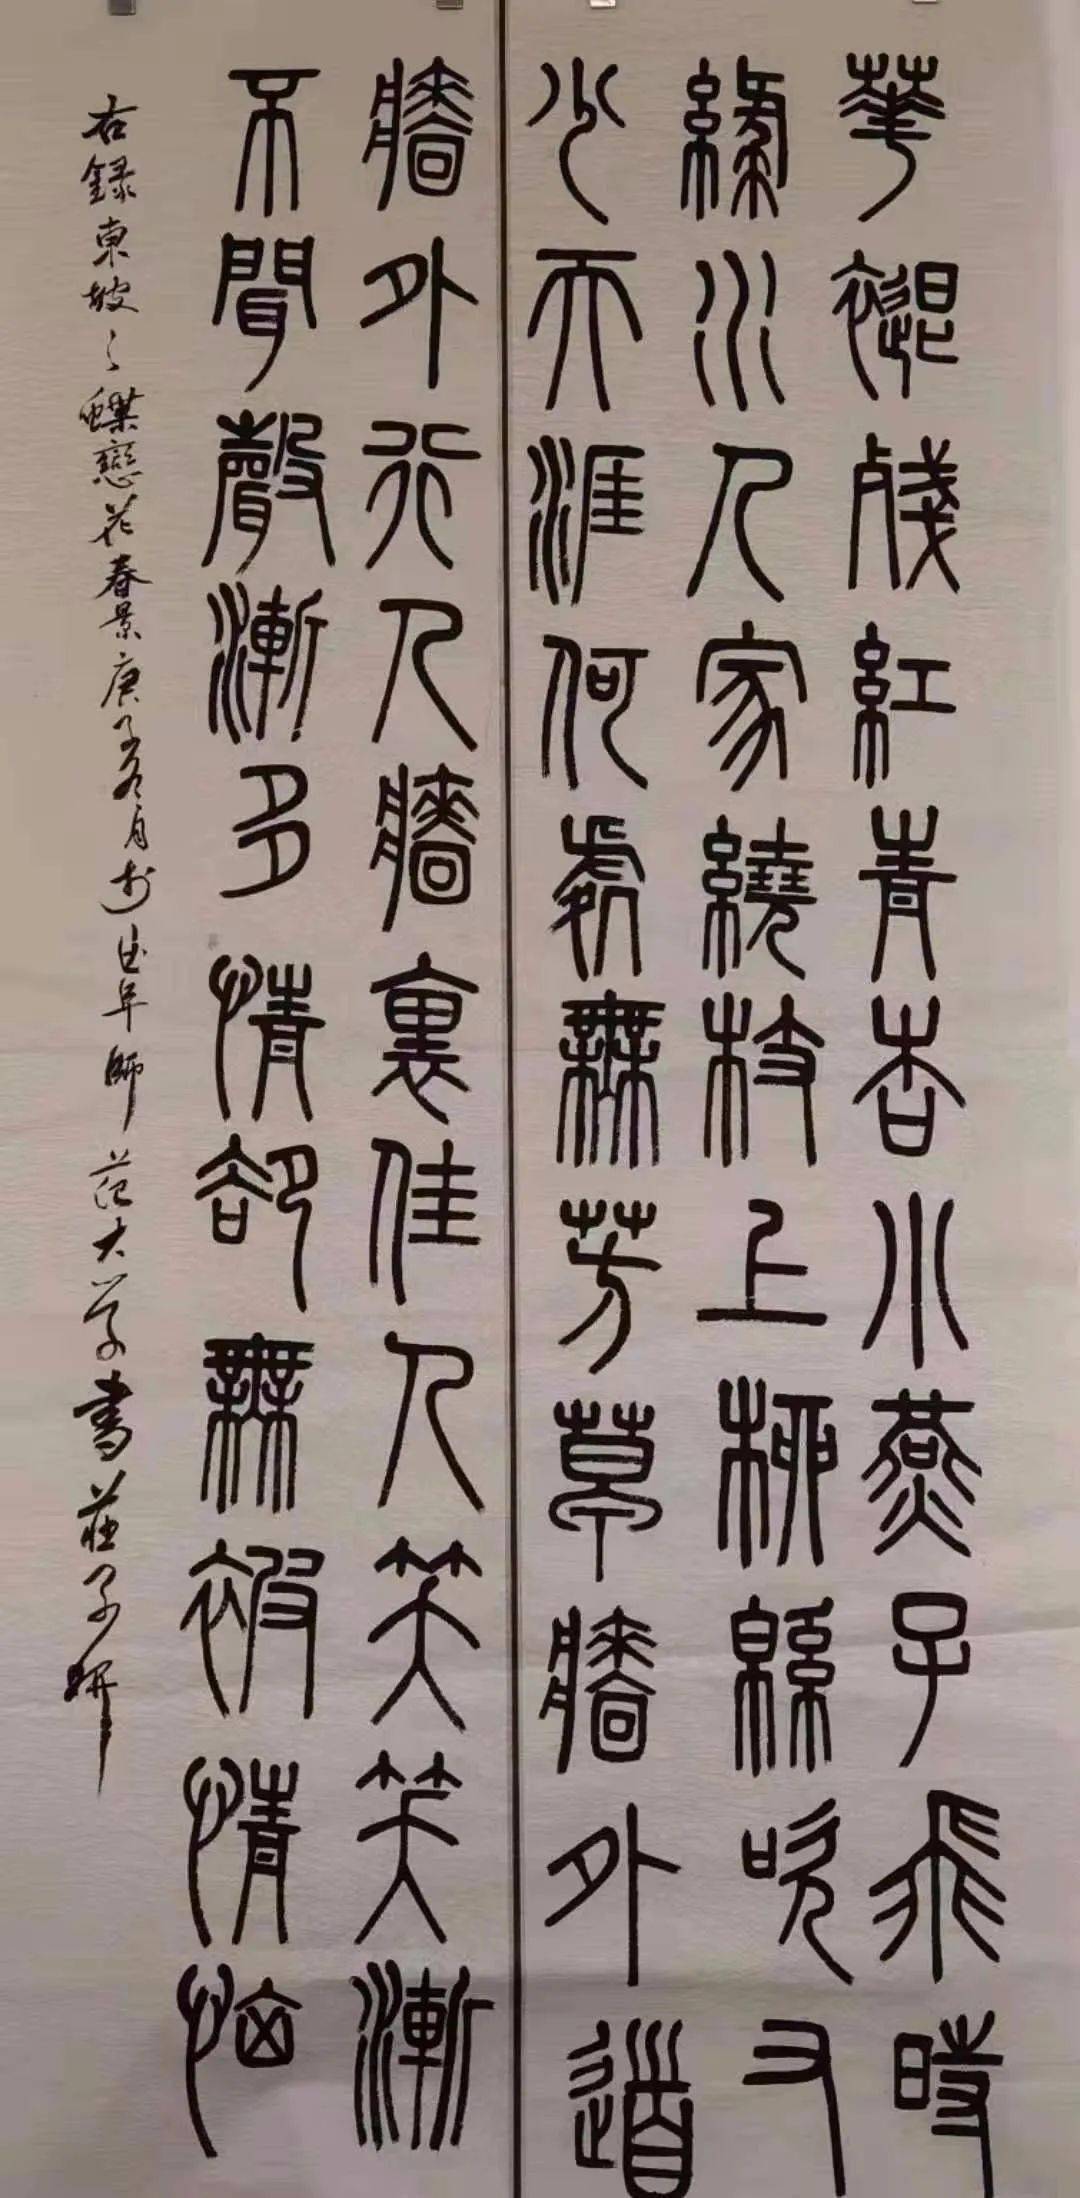 華褪殘紅青杏小燕子飛時
綠水人家繞枝上柳緜吹又
少天涯何處無芳草牆外道
牆外行人牆裏佳人笑笑漸
不聞聲漸多情卻無被情惱
右錄東坡之蝶戀花春景庚子冬月於師范大学書莊子妍